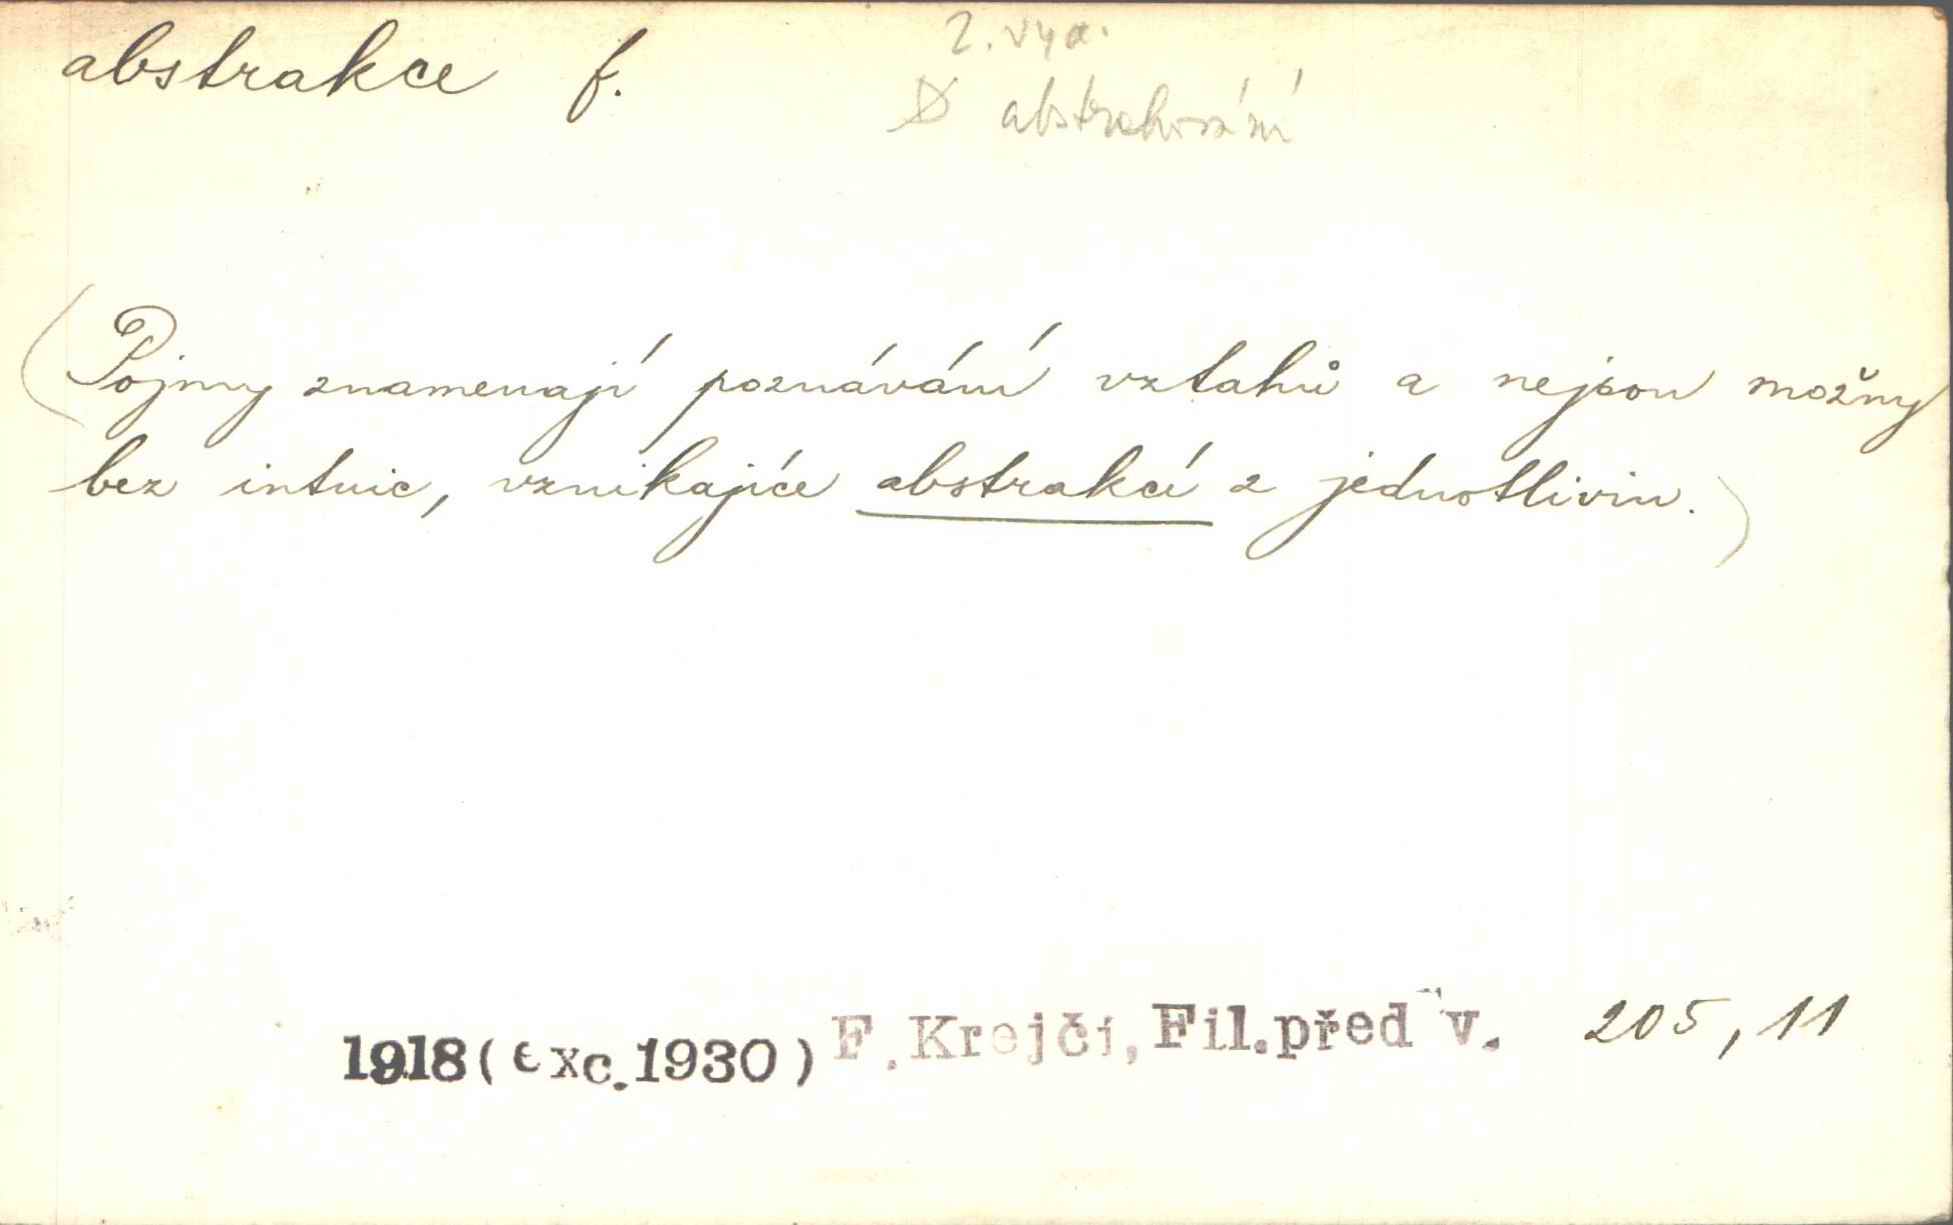 abstrakce f.
2. vyd.
abstrahování
(Pojmy znamenají poznávání vztahů a nejsou možny
bez intuic, vznikajíce abstrakcí z jednotlivin.)
1918 (exc. 1930) F. Krejčí, Fil. před v. 205, 11